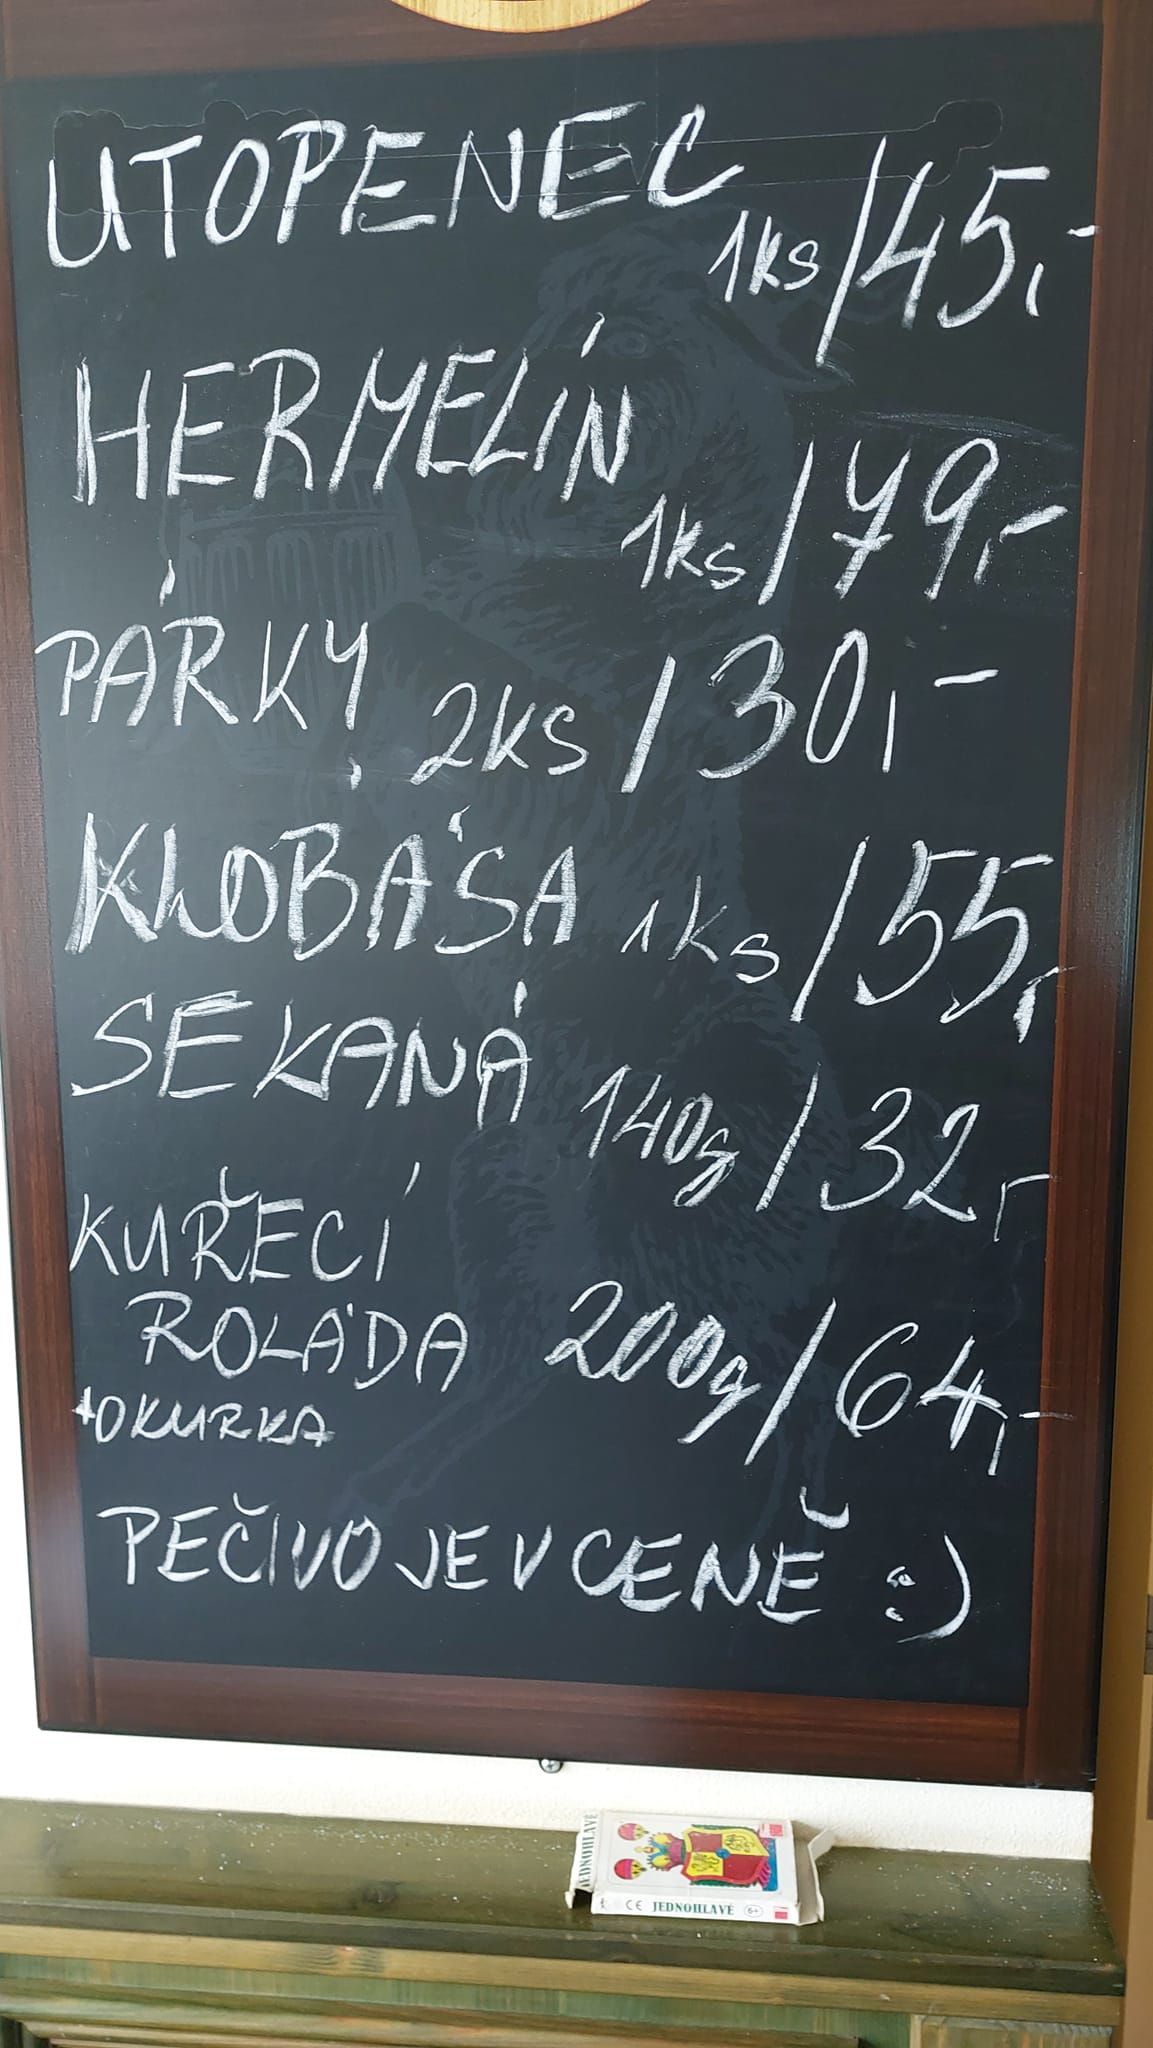 UTOPENEC 1ks/45,-
HERMELÍN 1ks/79,-
PÁRKY 2ks/30,-
KLOBÁSA 1ks/55,-
SEKANÁ 140g/32,-
KUŘECÍ
ROLÁDA 200g/64,-
+OKURKA
PEČIVO JE V CENĚ :)
JEDNOHLAVÉ
CE JEDNOHLAVÉ 6+